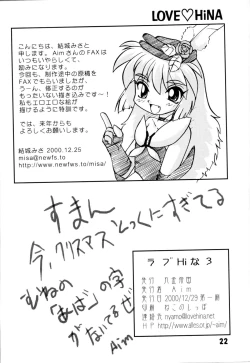 LOVE♡HiNA
こんにちは、結城みさと
申します。AimさんのFAXは
いつもいやらしくて、
励みになります。
今回も、制作途中の原稿を
FAXでもらいましたが、
うーん、修正するのが
もったいない描き込みです〜！
私もエロエロな絵が
描けるように特訓です。
では、来年からも
よろしくお願いします。
結城みさ 2000.12.25
misa@newfs.to
http://www.newfws.to/misa/
すまん
今、クリスマス とっくにすぎてる
むねの「あば」の字
がないてるぜ
Aim
ラブHiな3
発行
発行者 Aim
発行日 2000/12/29 第一刷
印刷 ねこのしっぽ
連絡先 nyamo@lovehina.net
22